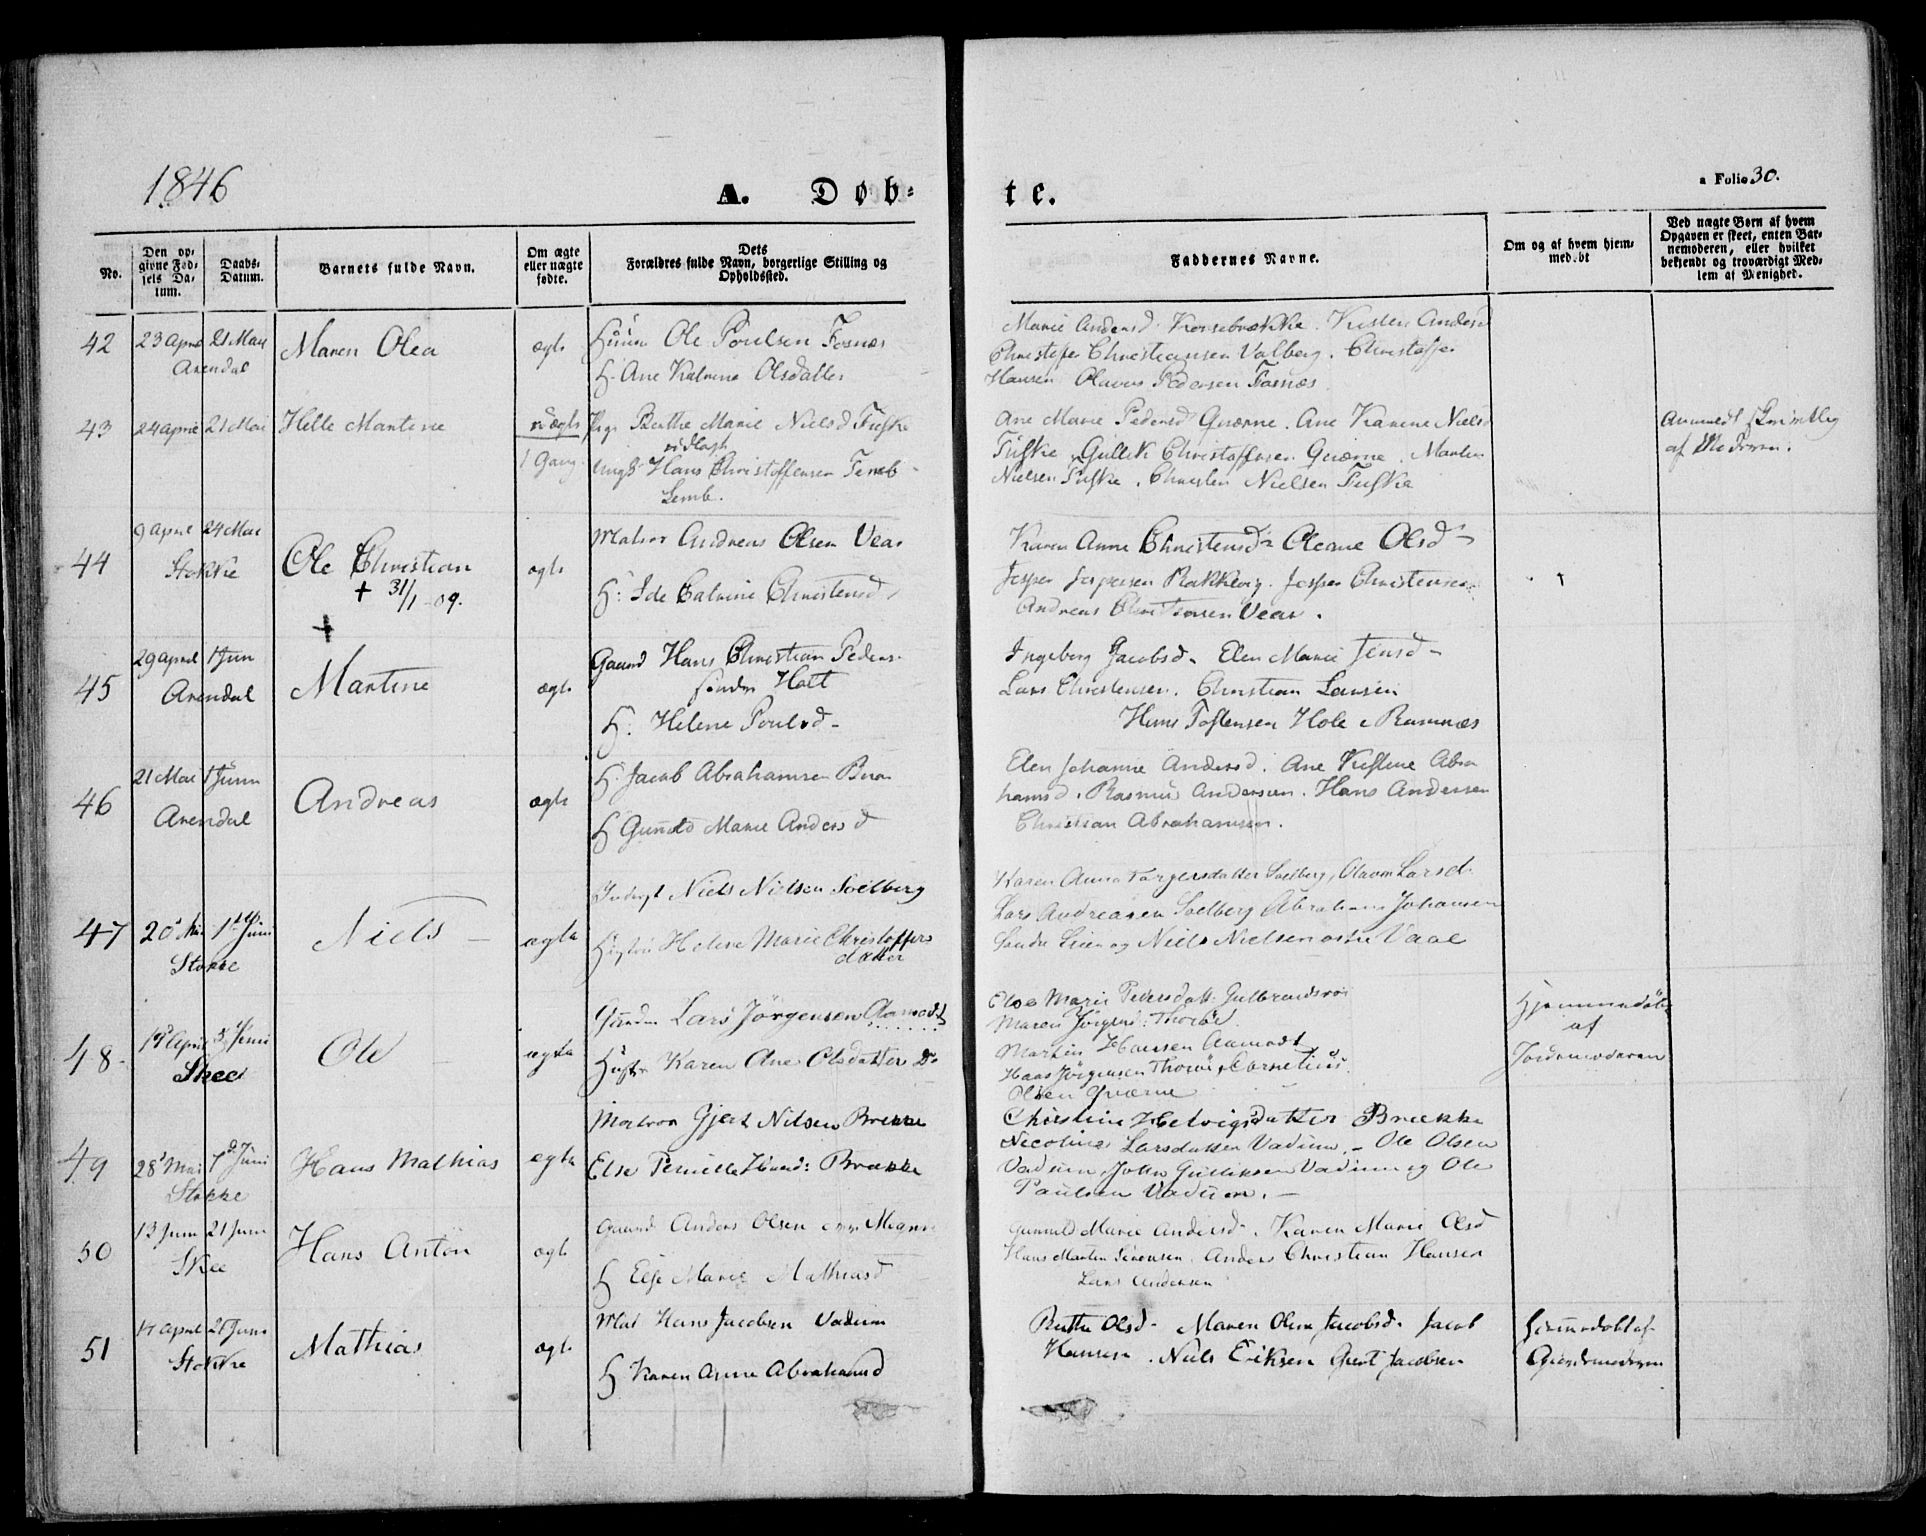 1846
A. Døb-
te.
a Folio 30.
No.
Den op-
givne Fød-
sels Da-
tum.
Daabs-
Datum.
Barnets fulde Navn.
Om ægte
eller uægte
fødte.
Dets
Forældres fulde Navn, borgerlige Stilling og
Opholdssted.
Faddernes Navne.
Om og af hvem hjem-
med.bt
Ved uægte Børn af hvem
Opgaven er skeet, enten Bar-
nemoderen, eller hvilket
bekjendt og troværdigt Med-
lem af Menighed.
42 23 April 21 Mai
Arendal
Maren Olea
ægte
Ole Poulsen Fosnæs
H. Ane Katrine Olsdatter
Marie Andersd Korsebrække. Kisten Andersd
Christoffer Christiansen Valberg. Christoffer
Hansen Olavus Pedersen Fosnæs.
43 24 April 21 Mai
Helle Martine
uægte
1 Gang
Pige Berthe Marie Nielsd Fuske
Ungk Hans Christoffersen
Lemb.
Ane Marie Pedersd Qværne. Ane Karine Nielsd
Fuske Gullik Christoffersen Qværne. Marten
Nielsen Fuske. Christen Nielsen Fuske
Anmeldt skriftlig
af Moderen.
44 9 April 24 Mai
Stokke
Ole Christian
+ 31/1 -09.
ægte
Matros Andreas Olsen Vear
H: Ide Catrine Christensd
Karen Anne Christensd Oleane Olsd
Jesper Jespersen Rakkevig. Jesper Christensen
Andreas Christensen Vear.
45 29 April 1 Jun
Arendal
+
Martine
ægte
Gaard Hans Christian Peders
søndre Holt
H: Helene Poulsd
Ingeborg Jacobsd. Elen Marie Jensd
Lars Christensen. Christian Larsen
Hans Tostensen Hole i Ramnæs
46 21 Mai 1 Juni
Arendal
Andreas
ægte
H. Jacob Abrahamsen
H Gunild Marie Andersd
Elen Johanne Andersd. Ane Kistine Abra
hamsd. Rasmus Andersen. Hans Andersen
Christian Abrahamsen.
47 20 Mai 1ste Juni
Stokke
Niels
ægte
Inderst Niels Nielsen Soelberg
Hustru Helene Marie Christoffers
datter
Karen Anne Torgersdatter Soelberg, Olava Larsd.
Lars Andreasen Soelberg Abraham Johansen
Sande Lien og Niels Nielsen østre Vaal
48 19 April Juni
Skee
Ole
ægte
Gaardm Lars Jørgensen Aamodt
Hustr Karen Ane Olsdatter Do
Else Marie Pedersdatt: Gulbrandsrø
Maren Jørgensd: Thorød
Martin Hansen Aamodt
Hans Jørgensen Thorød Cornelius
Olsen Qværne
Hjemmedøbt
af
Jordemoderen
49 28 Mai 7d Juni
Stokke
Hans Mathias
ægte
Matros Gjert Nilsen Brekke
Else Pernille Hansd: Brække
Christine Helvigsdatter Brække
Nicoline Larsdatter Vadum. - Ole Olsen
Vadum, John Gulliksen Vadum og Ole
Paulsen Vadum. -
50 13 Juni 21 Juni
Skee
Hans Anton
ægte
Gaard Anders Olsen
H Else Marie Mathiasd
Gunild Marie Andersd. Karen Marie Olsd
Hans Martin Sørensen. Anders Christian Hansen
Lars Andersen
51 April 21 Juni
Stokke
Mathias
ægte
Mat Hans Jacobsen Vadum
H Karen Anne Abrahamsd
Berthe Olsd. Maren Oline Jacobsd. Jacob
Hansen. Niels Eriksen Gjert Jacobsen
Hjemmedøbt af
Gjordemoderen